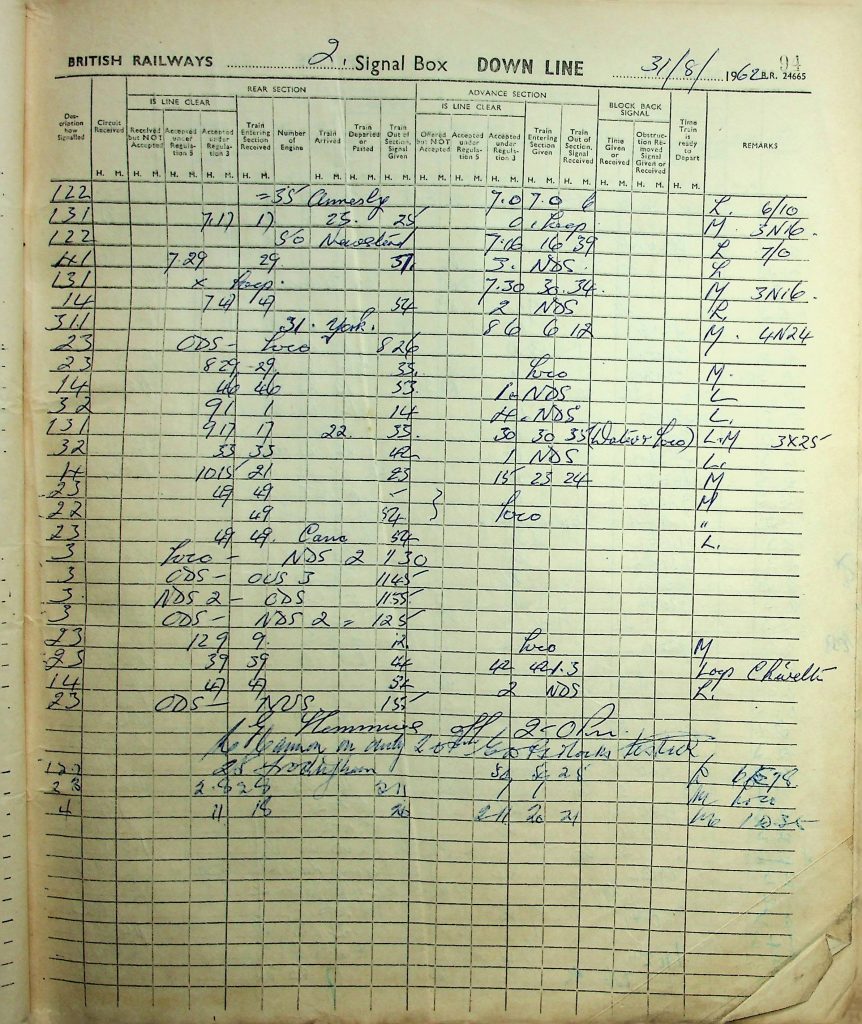 BRITISH RAILWAYS 2. Signal Box DOWN LINE 31/8/ 1962 B.R. 24665 94
REAR SECTION ADVANCE SECTION
IS LINE CLEAR IS LINE CLEAR BLOCK BACK SIGNAL
Description how Signalled Circuit Received Received but NOT Accepted Accepted under Regulation 5 Accepted under Regulation 3 Train Entering Section Received Number of Engine Train Arrived Train Departed or Passed Train Out of Section Signal Given Offered but NOT Accepted Accepted under Regulation 5 Accepted under Regulation 3 Train Entering Section Given Train Out of Section, Signal Received Time Given or Received Obstruction Removed Signal Given or Received Time Train is ready to Depart REMARKS
H. M. H. M. H. M. H. M. H. M. H. M. H. M. H. M. H. M. H. M. H. M. H. M. H. M. H. M. H. M. H. M.
122 = 35 Annesly 7.0 7.0 6 L. 6/10
131 7.17 17 25 25 0. Loop M. 3N16.
122 50 Newstead 7.16 16 39 L 7/0
41 7.29 29 31. 3. NDS. L
131 x Loop. 7.30 30. 34. M 3N16.
14 7 47 47 54 2 NDS L
311 31. York. 8 6 6 12 M. 4N24
23 ODS - Loco 8 26
23 8 29 29 35. Loco M.
14 46 46 53. 1. NDS L
32 9 1 1 14 4. NDS L.
131 9 17 17 22. 35. 30 30 35 (Water & Loco) L.M 3X25
32 33 33 42. 1 NDS L.
14 10 15 21 23 15 23 24 M
23 49 49 - } M
22 49 54 } Loco "
23 49 49. 54 L.
3 Loco - NDS 2 11 30
3 ODS - 3 11 45
3. NDS 2 - ODS 11 55
3 ODS - NDS 2 = 12 5
23 12 9 9. 12. Loco M
23 39 39 44 42 42 1.3 Loop
14 47 47 54 2 NDS L.
23 ODS - NDS. 1 55
off 2-0 Pm.
on duty 2 0 Pm
122 28 Frodingham 28 L
23 2.8 28 2 11 M Loco
4 11 18 20 2 11 20 21